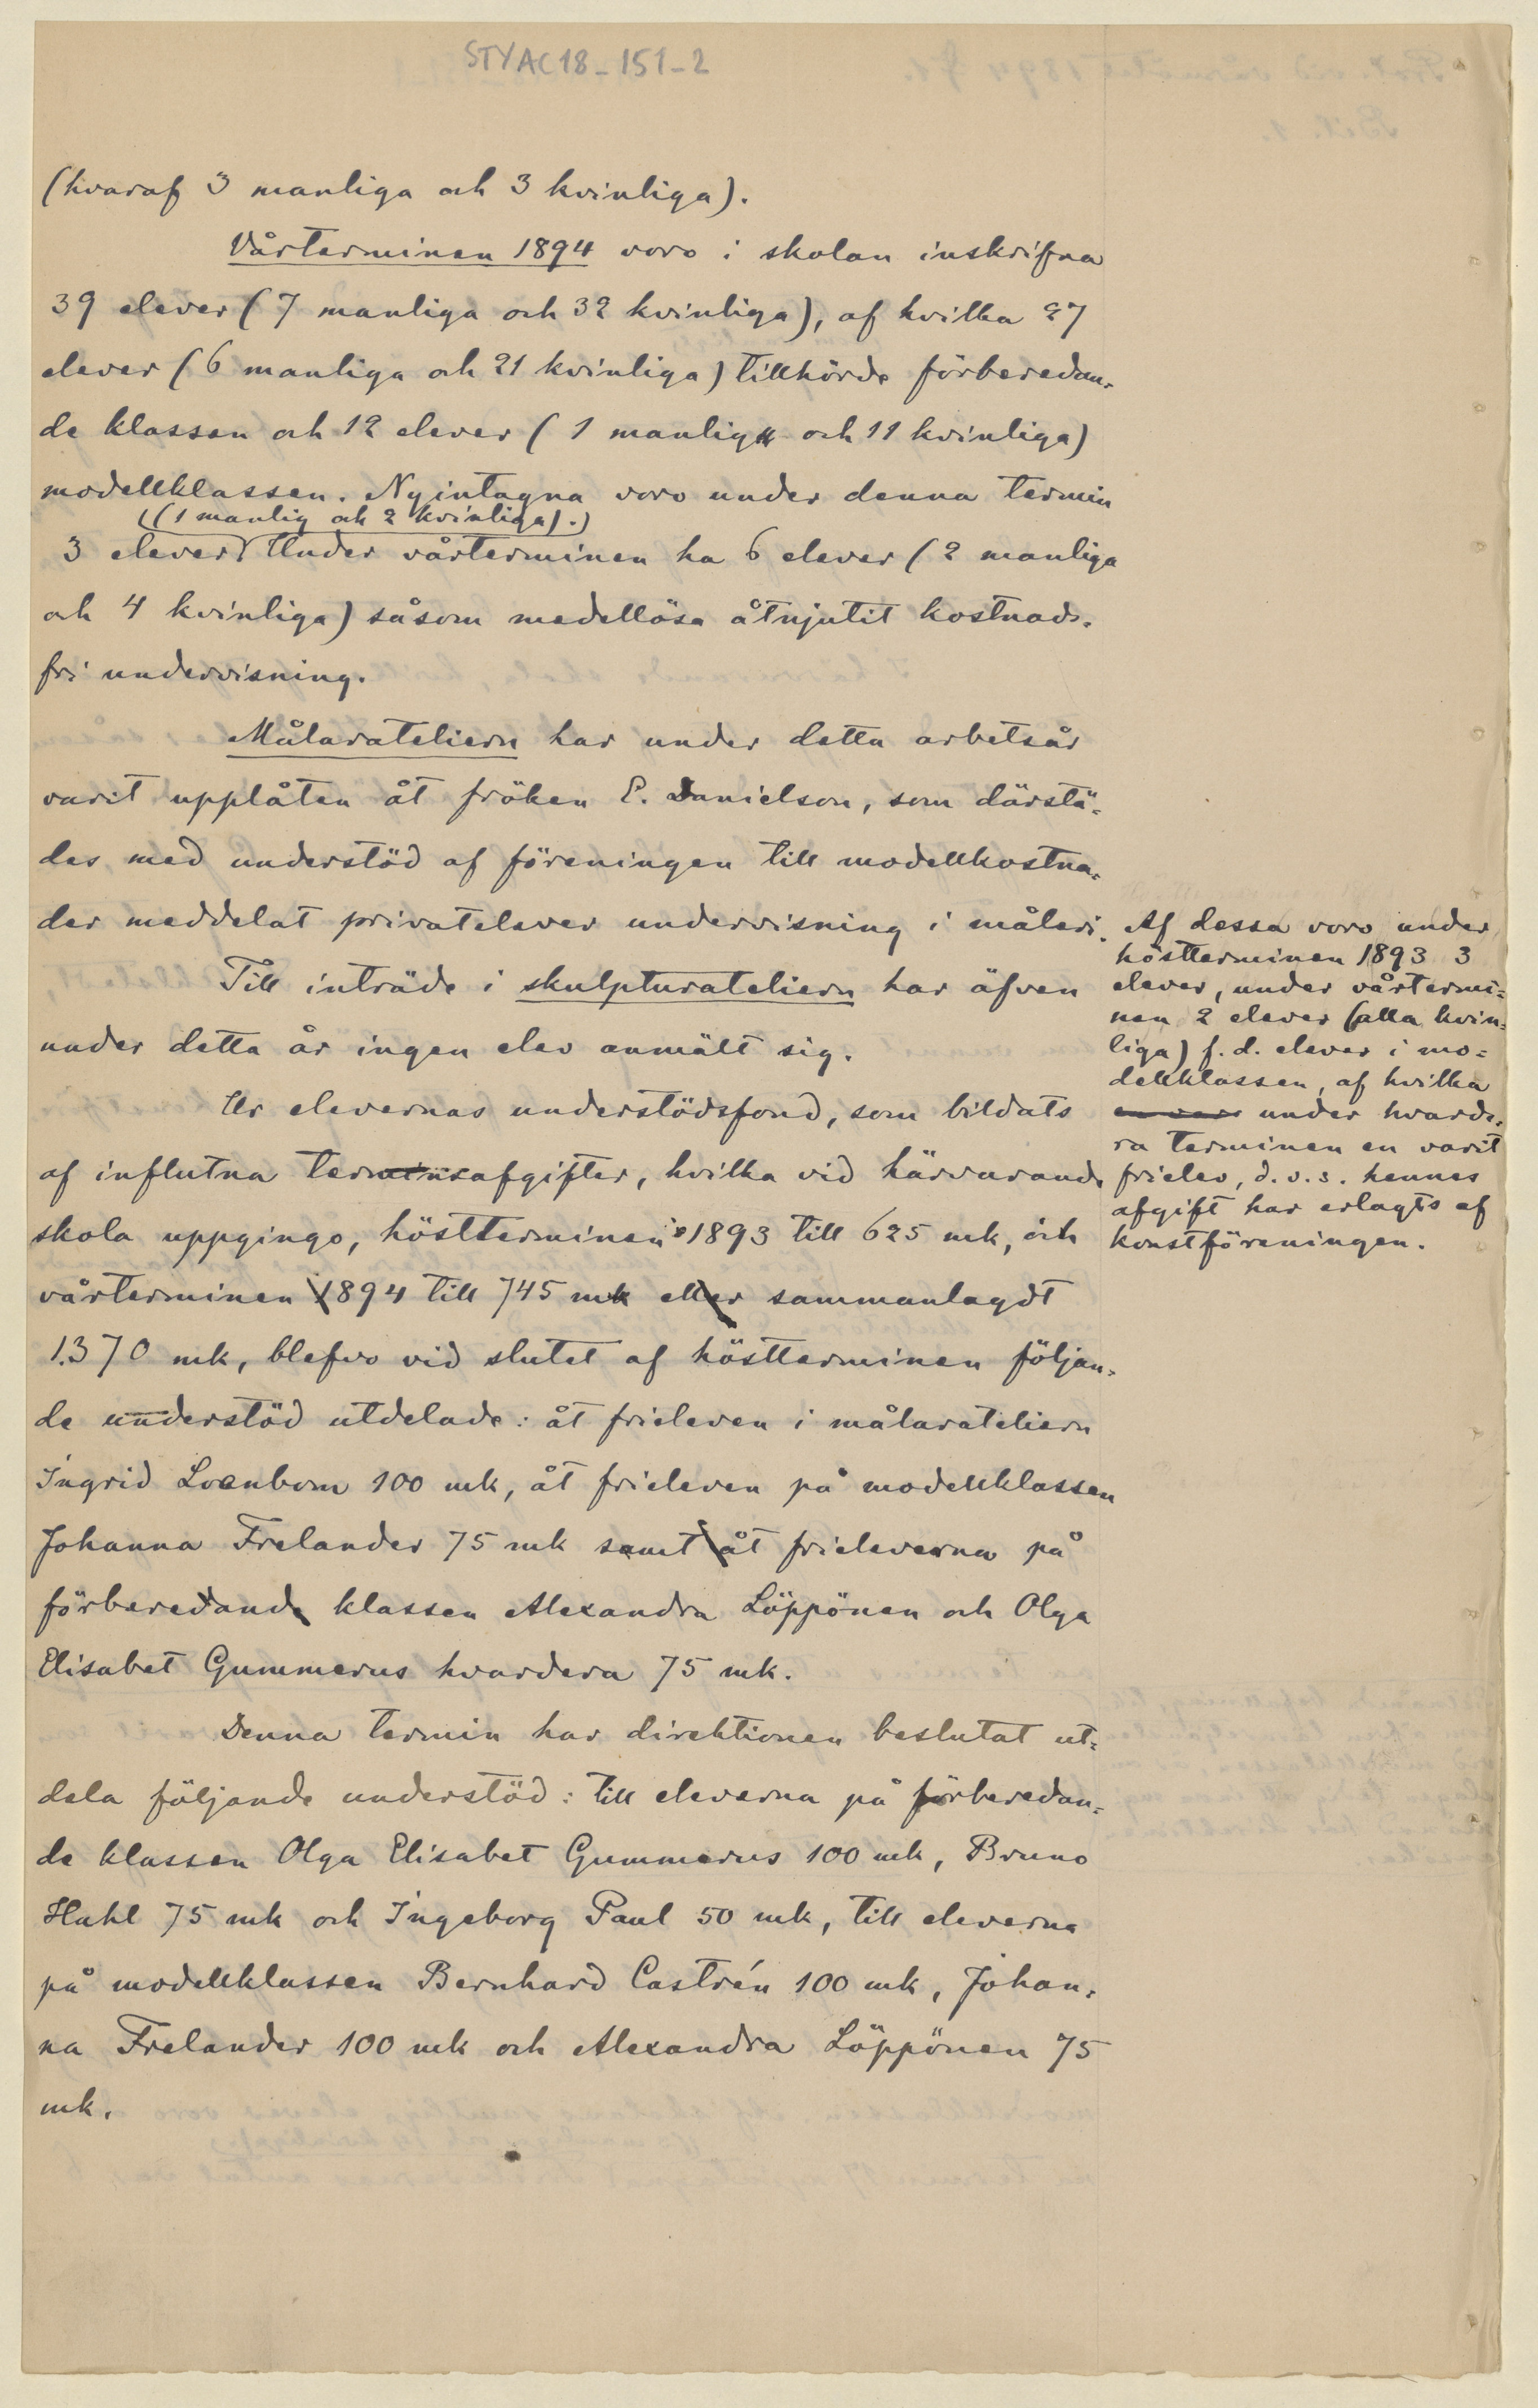 STYAC18-151-2
(hvaraf 3 manliga och 3 kvinliga).
Vårterminen 1894 voro i skolan inskrifna
39 elever (7 manliga och 32 kvinliga), af hvilka 27
elever (6 manliga och 21 kvinliga) tillhörde förberedan-
de klassen och 12 elever (1 manlig och 11 kvinliga)
modellklassen. Nyintagna voro under denna termin
(1 manlig och 2 kvinliga).
3 elever Under vårterminen ha 6 elever (2 manliga
och 4 kvinliga) såsom medellösa åtnjutit kostnads-
fri undervisning.
Målarateliern har under detta arbetsår
varit upplåten åt fröken E. Danielson, som därstä-
des med understöd af föreningen till modellkostna-
der meddelat privatelever undervisning i måleri.
Till inträde i skulpturateliern har äfven
under detta år ingen elev anmält sig.
Ur elevernas understödsfond, som bildats
af influtna terminsafgifter, hvilka vid härvarande
skola uppgingo, höstterminen 1893 till 625 mk, och
vårterminen 1894 till 745 mk eller sammanlagdt
1.370 mk, blefvo vid slutet af höstterminen följan-
de understöd utdelade: åt frieleven i målarateliern
Ingrid Loenbom 100 mk, åt frieleven på modellklassen
Johanna Frelander 75 mk samt åt frieleverna på
förberedande klassen Alexandra Löppönen och Olga
Elisabet Gummerus hvardera 75 mk.
Denna termin har direktionen beslutat ut-
dela följande understöd: till eleverna på förberedan-
de klassen Olga Elisabet Gummerus 100 mk, Bruno
Hahl 75 mk och Ingeborg Paul 50 mk, till eleverna
på modellklassen Bernhard Castrén 100 mk, Johan-
na Frelander 100 mk och Alexandra Löppönen 75
mk.
Af dessa voro under
höstterminen 1893 3
elever, under vårtermi-
nen 2 elever (alla kvin-
liga) f. d. elever i mo-
dellklassen, af hvilka
en var under hvarde-
ra terminen en varit
frielev, d. v. s. hennes
afgift har erlagts af
konstföreningen.